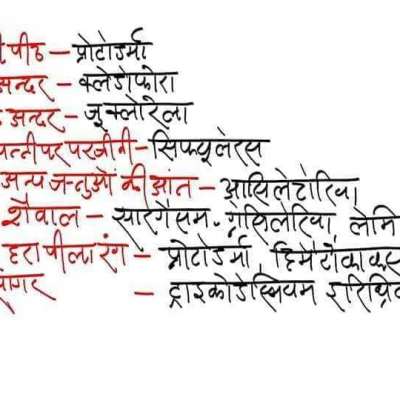 पीठ - प्रोटोडर्मा
अन्दर - क्लेडोफोरा
अन्दर - जूक्लोरेला
पत्तीपर परजीवी - सिफ्यूलेरस
अन्य जन्तुओं की आंत - आसिलेटोरिया
शैवाल - सारगैसम. ग्रेसिलेरिया, लेमि
हरा पीला रंग - प्रोटोडर्मा, हिमैटोकाकस
सागर - ट्राइकोडेस्मियम इरिथ्रि